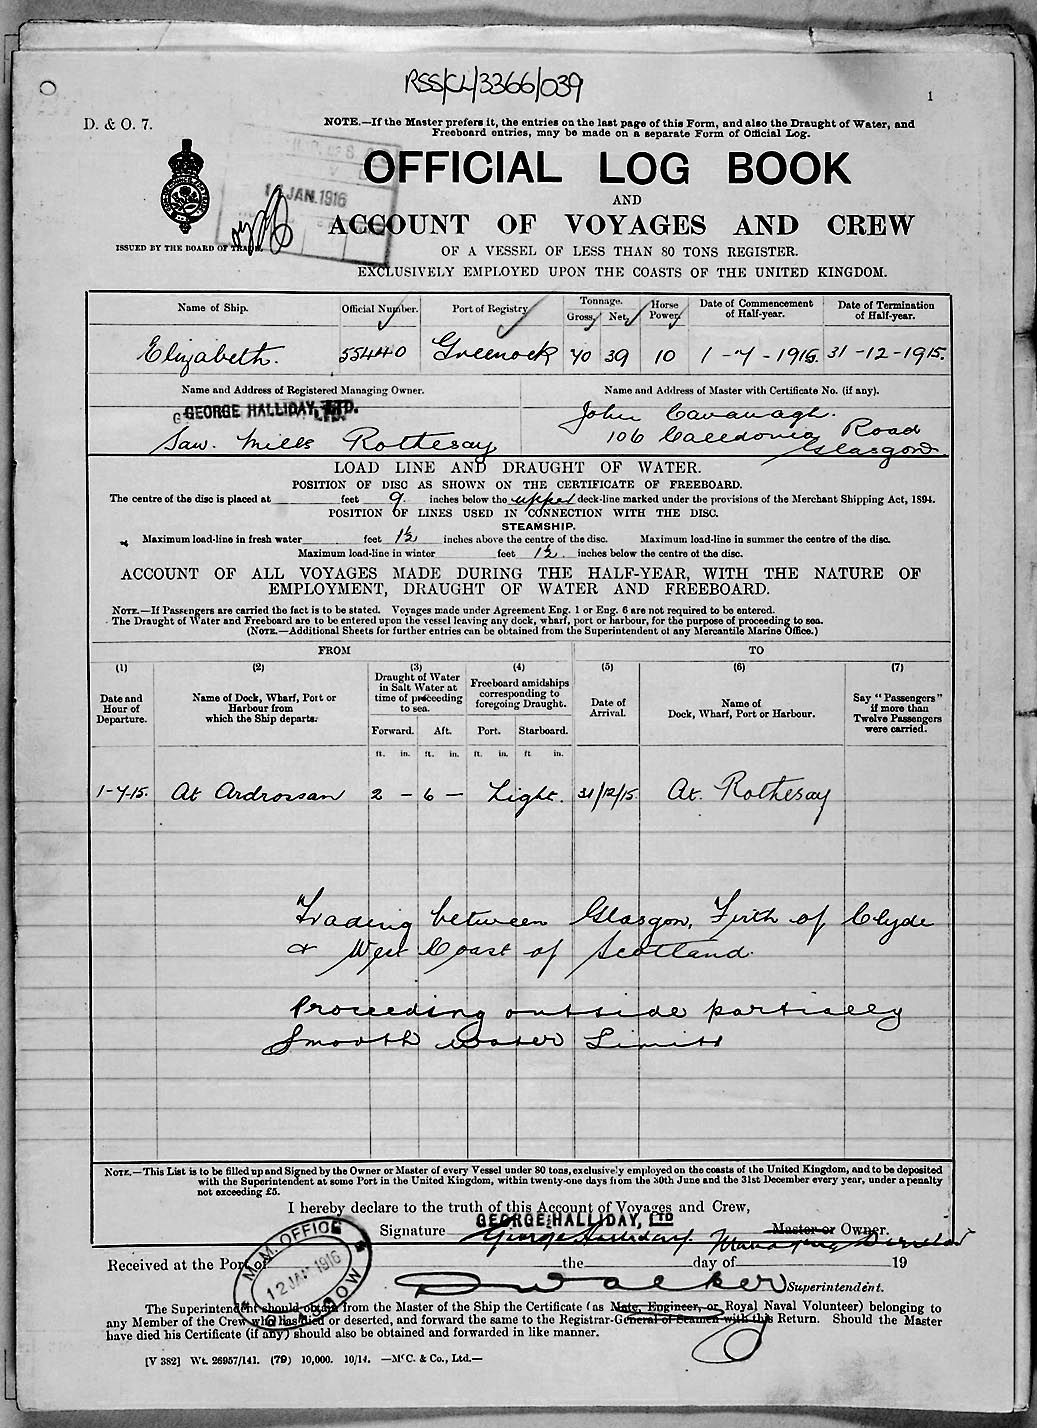 RSS/CL/3366/039
1
D. & O. 7.
NOTE.—If the Master prefers it, the entries on the last page of this Form, and also the Draught of Water, and
Freeboard entries, may be made on a separate Form of Official Log.
OFFICIAL LOG BOOK
JAN. 1916
AND
ACCOUNT OF VOYAGES AND CREW
ISSUED BY THE BOARD OF TRADE.
OF A VESSEL OF LESS THAN 80 TONS REGISTER.
EXCLUSIVELY EMPLOYED UPON THE COASTS OF THE UNITED KINGDOM.
Name of Ship. Official Number. Port of Registry Tonnage. Gross, Net, Horse Power, Date of Commencement of Half-year. Date of Termination of Half-year.
Elizabeth. 55440 Greenock 40 39 10 1-7-1915. 31-12-1915.
Name and Address of Registered Managing Owner. Name and Address of Master with Certificate No. (if any).
GEORGE HALLIDAY, LTD. John Cavanagh.
Saw Mills Rothesay 106 Caledonia Road
Glasgow
LOAD LINE AND DRAUGHT OF WATER.
POSITION OF DISC AS SHOWN ON THE CERTIFICATE OF FREEBOARD.
The centre of the disc is placed at feet 9 inches below the upper deck-line marked under the provisions of the Merchant Shipping Act, 1894.
POSITION OF LINES USED IN CONNECTION WITH THE DISC.
STEAMSHIP.
Maximum load-line in fresh water feet 1½ inches above the centre of the disc. Maximum load-line in summer the centre of the disc.
Maximum load-line in winter feet 1½ inches below the centre of the disc.
ACCOUNT OF ALL VOYAGES MADE DURING THE HALF-YEAR, WITH THE NATURE OF
EMPLOYMENT, DRAUGHT OF WATER AND FREEBOARD.
NOTE.—If Passengers are carried the fact is to be stated. Voyages made under Agreement Eng. 1 or Eng. 6 are not required to be entered.
The Draught of Water and Freeboard are to be entered upon the vessel leaving any dock, wharf, port or harbour, for the purpose of proceeding to sea.
(NOTE.—Additional Sheets for further entries can be obtained from the Superintendent of any Mercantile Marine Office.)
FROM TO
(1) (2) (3) (4) (5) (6) (7)
Date and Hour of Departure. Name of Dock, Wharf, Port or Harbour from which the Ship departs. Draught of Water in Salt Water at time of proceeding to sea. Freeboard amidships corresponding to foregoing Draught. Date of Arrival. Name of Dock, Wharf, Port or Harbour. Say "Passengers" if more than Twelve Passengers were carried.
Forward. Aft. Port. Starboard.
ft. in. ft. in. ft. in. ft in.
1-7-15. At Ardrossan 2 - 6 - Light. 31/12/15. At. Rothesay
Trading between Glasgow, Firth of Clyde
& West Coast of Scotland.
Proceeding outside partially
Smooth water Limits
NOTE.—This List is to be filled up and Signed by the Owner or Master of every Vessel under 80 tons, exclusively employed on the coasts of the United Kingdom, and to be deposited
with the Superintendent at some Port in the United Kingdom, within twenty-one days from the 30th June and the 31st December every year, under a penalty
not exceeding £5.
I hereby declare to the truth of this Account of Voyages and Crew,
GEORGE HALLIDAY, LTD
Signature George Halliday. Master or Owner.
Managing Director
M.M. OFFICE
12 JAN 1916
GLASGOW
Received at the Port of the day of 19
D Walker Superintendent.
The Superintendent should obtain from the Master of the Ship the Certificate (as Mate, Engineer, or Royal Naval Volunteer) belonging to
any Member of the Crew who has died or deserted, and forward the same to the Registrar-General of Seamen with this Return. Should the Master
have died his Certificate (if any) should also be obtained and forwarded in like manner.
[V 382] Wt. 26957/141. (79) 10,000. 10/14. —McC. & Co., Ltd.—